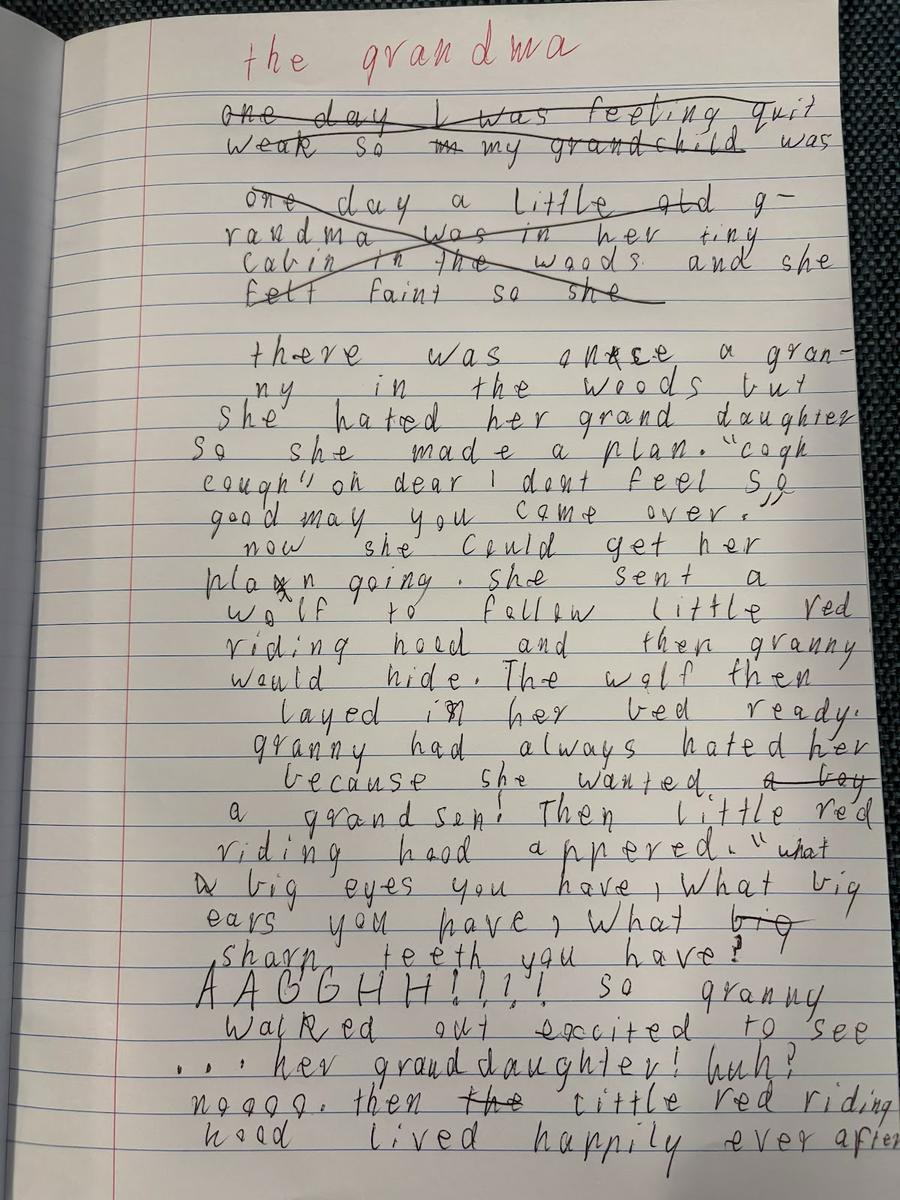 the grandma
one day I was feeling quit
weak so m my grandchild was
one day a little old g-
randma was in her tiny
cabin in the woods and she
felt faint so she
there was once a gran-
ny in the woods but
she hated her grand daughter
so she made a plan. "cogh
cough" oh dear I dont feel so
good may you come over."
now she could get her
plan going. she sent a
wolf to follow little red
riding hood and then granny
would hide. The wolf then
layed in her bed ready.
granny had always hated her
because she wanted a boy
a grand son! Then little red
riding hood appered. "what
big eyes you have, What big
ears you have, What big
sharp teeth you have?
AAGGHH!!!! so granny
walked out excited to see
... her granddaughter! huh?
noooo. then the little red riding
hood lived happily ever after